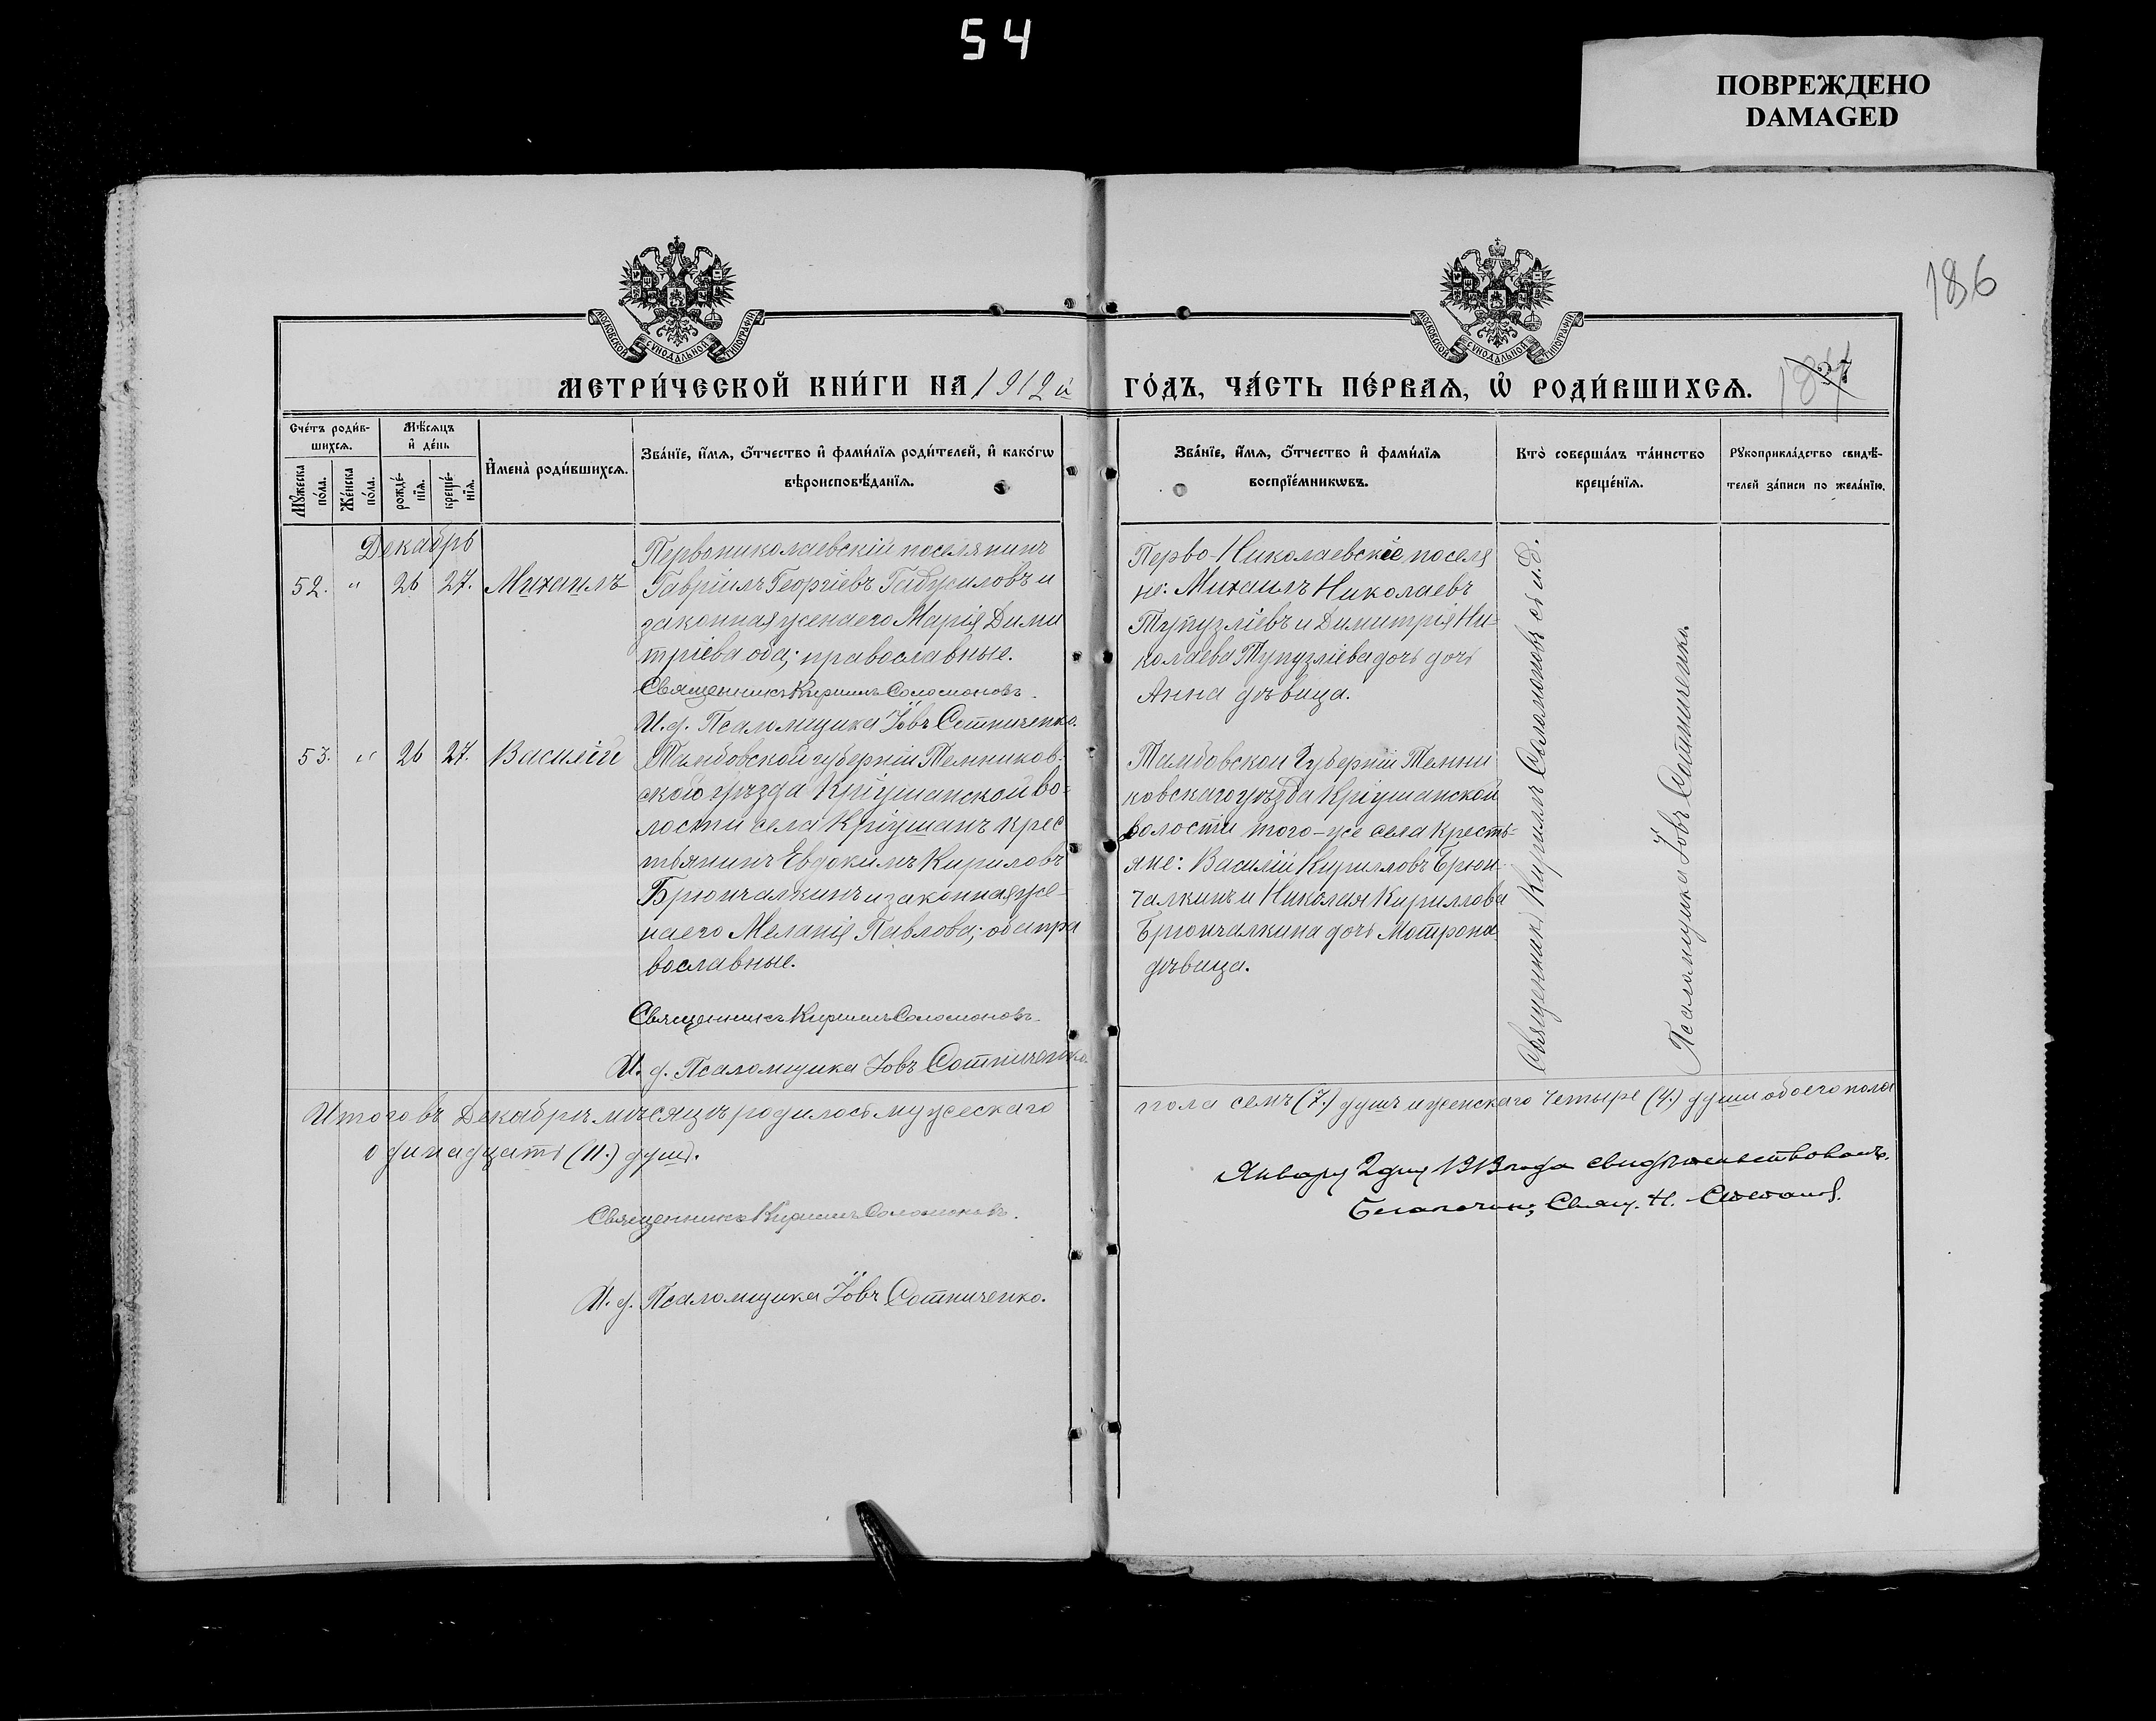 54
ПОВРЕЖДЕНО
DAMAGED
186
МОСКОВСКОЙ СѴНОДАЛЬНОЙ ТИПОГРАФІИ
МОСКОВСКОЙ СѴНОДАЛЬНОЙ ТИПОГРАФІИ
МЕТРИ́ЧЕСКОЙ КНИ́ГИ НА 1912й
ГО́ДЪ, ЧА́СТЬ ПЕ́РВАЯ, Ѡ҆ РОДИ́ВШИХСЯ.
Сче́тъ роди́в-
шихся.
Мѣ́сяцъ
и҆ де́нь
Мꙋ́жеска по́ла.
Же́нска по́ла.
рожде́-
нїя.
креще́-
нїя.
И҆мена̀ роди́вшихся.
Зва́нїе, и҆́мя, ѻ҆́тчество и҆ фами́лїя роди́телей, и҆ како́гѡ
вѣроисповѣ́данїя.
Зва́нїе, и҆́мя, ѻ҆́тчество и҆ фами́лїя
воспрїе́мникѡвъ.
Кто̀ соверша́лъ та́инство
креще́нїя.
Рꙋкоприкла́дство свидѣ́-
телей за́писи по жела́нїю.
Декабрь
52. " 26 27. Михаилъ
Первониколаевскій поселянинъ
Гавріилъ Георгіевъ Габужиловъ и
законная жена его Марія Дими
тріева оба; православные.
Священникъ Кириллъ Соломоновъ.
И. д. Псаломщика Іовъ Сотниченко.
Перво-Николаевскіе поселя
не: Михаилъ Николаевъ
Тупузліевъ и Димитрія Ни-
колаева Тупузліева дочь дочь
Анна дѣвица.
53. " 26 27. Василій
Тамбовской губерніи Темников-
скаго уѣзда Кріушанской во-
лости села Кріушанъ крес
тьянинъ Евдокимъ Кириловъ
Брюнчалкинъ и законная же-
на его Меланія Павлова; оба пра
вославные.
Священникъ Кириллъ Соломоновъ
И. д. Псаломщика Іовъ Сотниченко.
Тамбовской Губерніи Темни
ковскаго уѣзда Кріушанской
волости того-же села Кресть-
яне: Василій Кирилловъ Брюн-
чалкинъ и Николая Кириллова
Брюнчалкина дочь Мотрона
дѣвица.
Священникъ Кириллъ Соломоновъ съ и. д.
Псаломщика Іовъ Сотниченко.
Итого въ Декабрѣ мѣсяцѣ родилось мужескаго
пола семъ (7.) душъ и женскаго четыре (4.) души обоего пола
одинадцать (11.) душъ.
Священникъ Кириллъ Соломоновъ.
И. д. Псаломщика Іовъ Сотниченко.
Январу 2 дня 1913 года свидѣтельствовалъ.
Благочин. Свящ. Н.